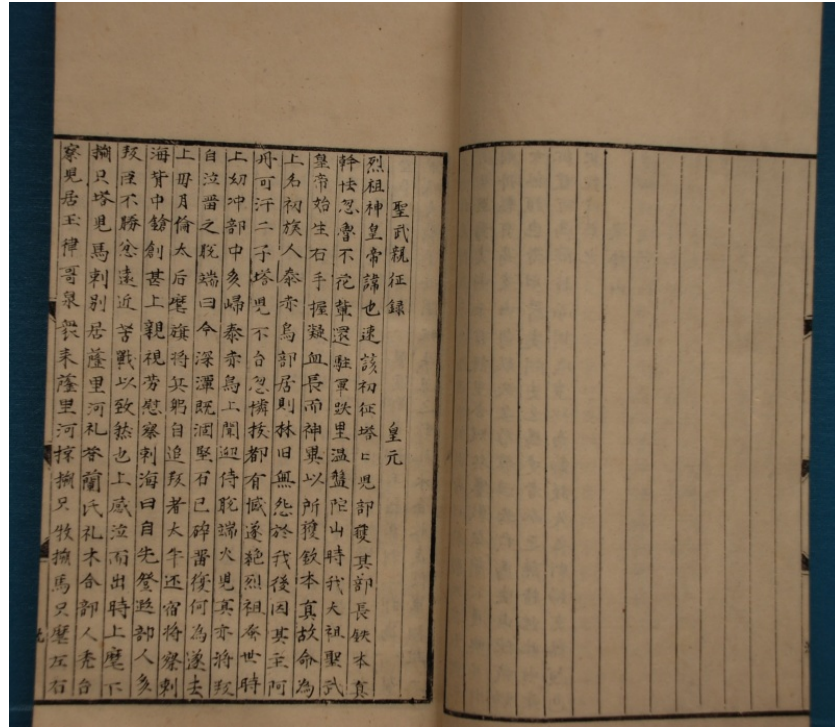 聖武親征録 皇元
烈祖神皇帝諱也速該初征塔〻児部獲其部長鉄木真
斡怯忽魯不花輩還駐軍跌里温盤陀山時我太祖聖武
皇帝始生右手握凝血長而神異以所獲鉄木真故命為
上名初族人泰赤烏部居則林旧無怨於我後因其主阿
丹可汗二子塔児不台忽憐抜都有憾遂絶烈祖奔世時
上幼冲部中多帰泰赤烏上聞近侍脱端火児真亦将叛
自泣留之脱端曰今深潭既涸堅石已碎留復何為遂去
上母月倫太后麾旗将兵躬自追叛者大半还宿将察剌
海背中鎗創甚上親視労慰察剌海曰自先登遐部人多
叛臣不勝忿遠近苦戦以致然也上感泣而出時上麾下
搠只塔児馬剌別居薩里河札荅蘭氏札木合部人禿台
察児居玉律哥泉衆来薩里河掠搠只牧搠馬只麾左右